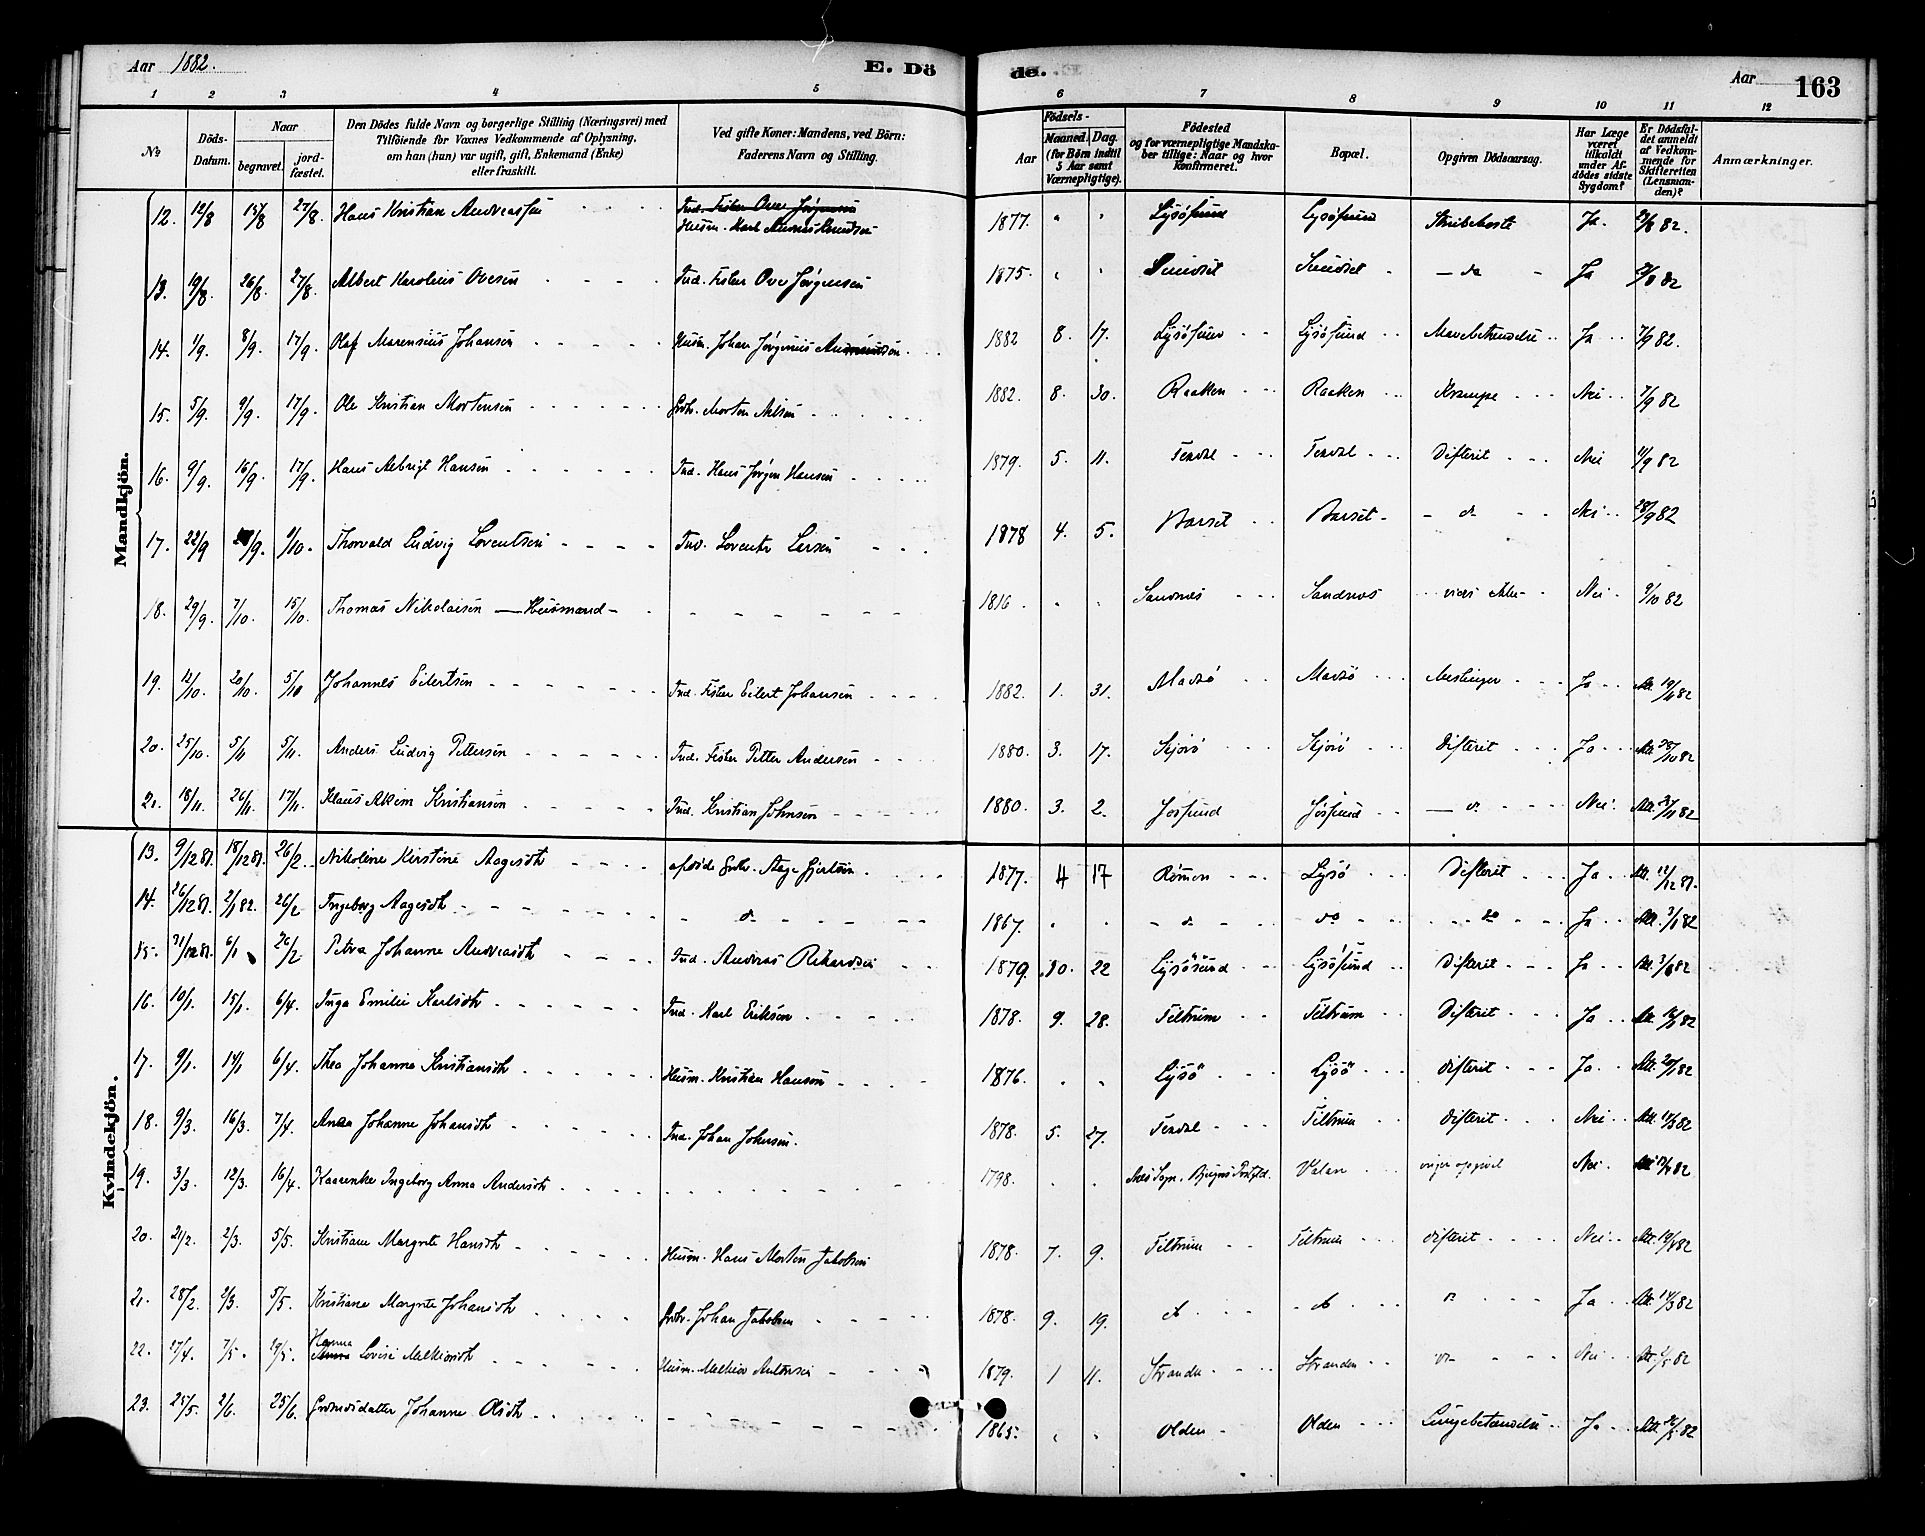 Aar 1882. E. Dö
de. Aar 163
1 2 3 4 5 6 7 8 9 10 11 12
No
Döds-Datum.
Naar begravet. jordfæstet.
Den Dödes fulde Navn og borgerlige Stilling (Næringsvei) med Tilföiende for Voxnes Vedkommende af Oplysning, om han (hun) var ugift, gift, Enkemand (Enke) eller fraskilt.
Ved gifte Koner: Mandens, ved Börn: Faderens Navn og Stilling.
Födsels-
Aar Maaned. Dag. (for Börn indtil 5 Aar samt Værnepligtige).
Födested og for værnepligtige Mandskaber tillige: Naar og hvor konfirmeret.
Bopæl.
Opgiven Dödsaarsag.
Har Læge været tilkaldt under Afdödes sidste Sygdom?
Er Dödsfaldet anmeldt af Vedkommende for Skifteretten (Lensmanden)?
Anmærkninger.
Mandkjön.
12. 12/8 15/8 27/8. Hans Kristian Andreassen Ind. Fisker Ove Jørgensen Husm. Karl Knudsen 1877. Lysösund Lysösund Strubehoste Ja. 82.
13. 19/8 26/8. 27/8. Albert Karolius Ovesen Ind. Fisker Ove Jørgensen 1875. do Ja 82
14. 1/9. 8/9. 17/9. Olaf Marensius Johansen Husm. Johan Jørginius 1882 8. 17. Lysösund Lysösund Mavebetændelse Ja 7/9 82.
15. 5/9. 9/9. 17/9. Ole Kristian Mortensen Grbr. Morten Nilsen 1882. 8. 30. Raaken Raaken Krampe Nei 7/9 82
16. 9/9. 16/9. 17/9. Hans Albrigt Hansen Ind. Hans Jørgen Hansen 1879. 5. 11. Terdal Terdal Difterit Nei 11/9 82
17. 22/9 /9. 9/10. Thorvald Ludvig Lorentsen Ind. Lorents Larsen 1878 4. 5. Barset Barset do Nei 28/9 82
18. 29/9. 7/10. 15/10. Thomas Nikolaisen — Husmand 1816 Sandnæs Sandnæs Nei 9/10 82
19. 12/10. 20/10. 5/11 Johannes Eilertsen Ind. Fisker Eilert Johansen 1882. 1. 31. Madsö Madsö Meslinger Ja Att. 19/11 82
20. 25/10. 5/11 5/11. Anders Ludvig Pettersen Ind. Fisker Petter Andersen 1880. 3. 17. Skjorö Skjorö Difterit Ja Att. 28/10 82
21. 18/11. 26/11. 17/11. Klaus Akim Kristiansen Ind. Kristian Johnsen 1880. 3. 2. Jøssund Jøssund do Nei Att. 28/11 82
Kvindekjön.
13. 9/12 81. 18/12 81. 26/2. Nikoline Kirstine Aagesdtr afdöde Grbr. Aage Gjertsen 1877. 4 17 Römen Lysö Difterit Ja Att. 12/12 81.
14. 26/12 81. 2/1 82. 26/2 Ingeborg Aagesdtr do 1867. do do do Ja Att. 3/1 82
15. 31/12 81. 6/1 26/2 Petra Johanne Andreasdtr Ind. Andreas Rikardsen 1879. 10. 22 Lysösund Lysösund Difterit Ja Att. 3/1 82
16. 10/1. 15/1. 6/4. Inga Emilie Karlsdtr Ind. Karl Eriksen 1878. 9. 28. Teltrum Teltrum Difterit Ja Att. 82
17. 9/1. 14/1 6/4. Thea Johanna Kristiansdtr Husm. Kristian Hansen 1876. Lysö Lysö Difterit Ja Att. 20/1 82
18. 9/3. 16/3. 7/4. Anna Johanne Johansdtr Ind. Johan Johnsen. 1878. 5. 27. Terdal Teltrum Difterit Nei Att. 82
19. 3/3. 12/3. 16/4. Karenke Ingeborg Anna Andersdtr 1798. Næs Sogn, Bjugns Prstgld. Valan opgivet Nei. 82
20. 21/2. 2/3. 5/5. Kristiane Margrete Hansdtr Husm. Hans Morten Jakobsen 1878. 7. 9. Teltrum Teltrum Difterit Nei Att. 82
21. 28/2. 2/3. 5/5. Kristiane Margrete Johansdtr Grbr. Johan Jakobsen 1878. 9. 19. do do do Ja Att. 14/3 82
22. 27/4. 7/5. 29/5. Hanna Lovise Melkiorsdtr Husm. Melkior Antonsen 1879. 1 11. Stranden Stranden do Nei Att. 82
23. 25/5. 2/6. 25/6. Grdmdsdatter Johanne Olsdtr 1865. Olden Olden Lungebetændelse Ja Att. 82